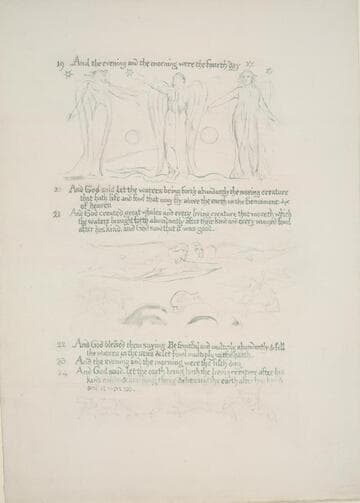 19 And the evening and the morning were the fourth day
20 And God said let the waters bring forth abundantly the moving creature
that hath life and fowl that may fly above the earth in the firmament
of heaven
21 And God created great whales and every living creature that moveth which
the waters brought forth abundantly after their kind and every winged fowl
after his kind. and God saw that it was good.
22 And God blessed them saying Be fruitful and multiply abundantly & fill
the waters in the seas & let fowl multiply in the earth.
And the evening and the morning were the fifth day
24 And God said. let the earth bring forth the living creature after his
kind cattle & creeping thing & beast of the earth after his kind &
it was so.